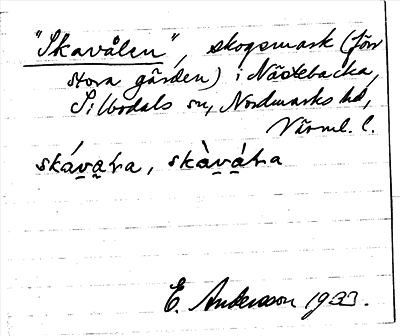 "Skavålen", skogsmark (förr
stora gärden) i Nästebacka,
Silbodals sn, Nordmarks hd,
Värml. l.
skáva̱ɽa, skàvá̱ɽa
E. Andersson 1933.